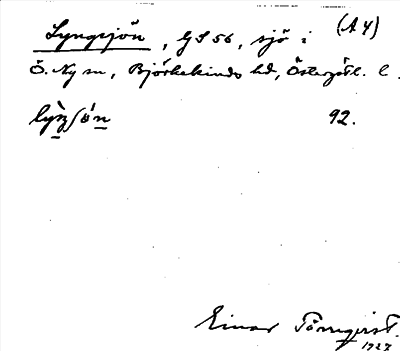 Lyngsjön, GS 56, sjö i (A 4)
Ö. Ny sn, Björkekinds hd, Östergötl. l.
92.
Einar Törnqvist.
1927